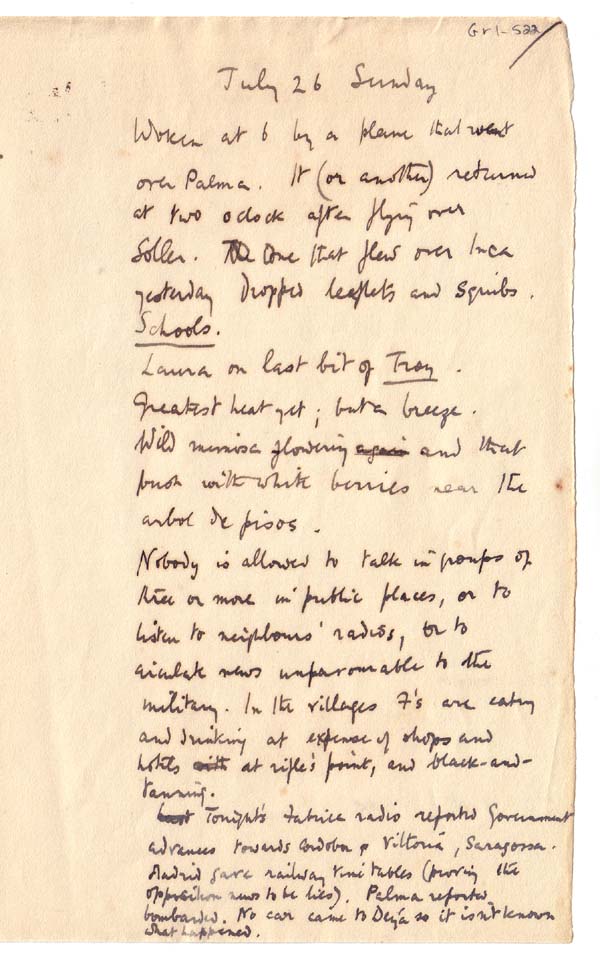 Gr1-522
July 26 Sunday
Woken at 6 by a plane that went
over Palma. It (or another) returned
at two oclock after flying over
Soller. The One that flew over Inca
yesterday dropped leaflets and squibs.
Schools.
Laura on last bit of Troy.
Greatest heat yet; but a breeze.
Wild mimosa flowering again and that
bush with white berries near the
arbol de pisos.
Nobody is allowed to talk in groups of
three or more in public places, or to
listen to neighbours' radios, or to
circulate news unfavourable to the
military. In the villages F's are eating
and drinking at expense of shops and
hotels with at rifle's point, and black-and-
tanning.
Last Tonight's radio reported Government
advances towards Cordoba & Vittoria, Saragossa.
Madrid gave railway timetables (proving the
opposition news to be lies). Palma reported
bombarded. No car came to Deyá so it isn't known
what happened.